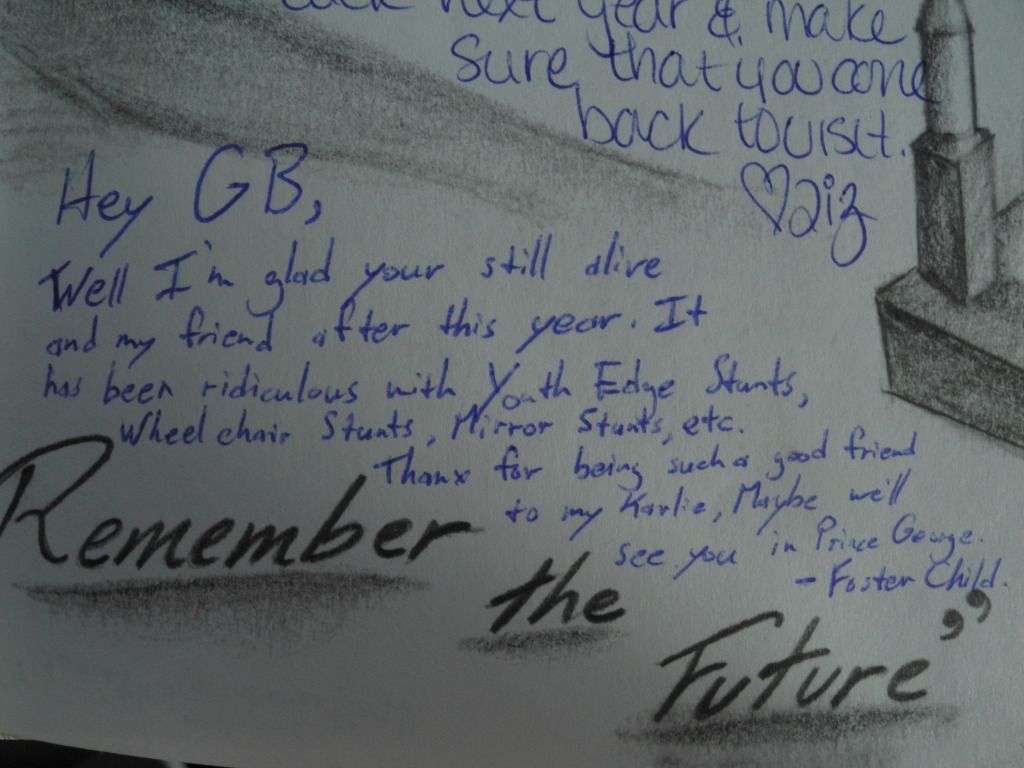 back next year & make
sure that you come
back to visit.
♡ Liz
Hey GB,
Well I'm glad your still alive
and my friend after this year. It
has been ridiculous with Youth Edge Stunts,
Wheel chair Stunts, Mirror Stunts, etc.
Thanx for being such a good friend
to my Karlie, Maybe we'll
see you in Prince George.
- Foster Child.
Remember
the
Future”